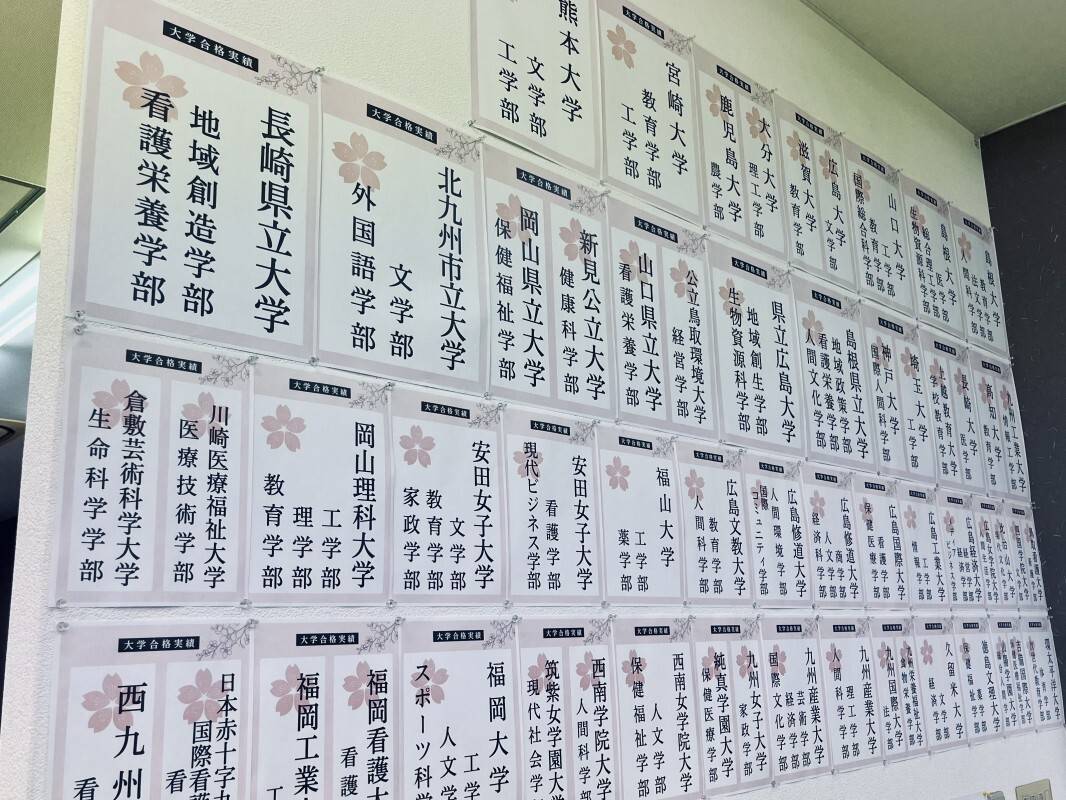 熊本大学
文学部
工学部
大学合格実績
宮崎大学
教育学部
工学部
大学合格実績
大分大学
理工学部
鹿児島大学
農学部
大学合格実績
広島大学
文学部
滋賀大学
教育学部
大学合格実績
山口大学
工学部
教育学部
国際総合科学部
島根大学
医学部
総合理工学部
生物資源科学部
島根大学
教育学部
法文学部
人間科学部
大学合格実績
長崎県立大学
地域創造学部
看護栄養学部
大学合格実績
北九州市立大学
文学部
外国語学部
大学合格実績
新見公立大学
健康科学部
岡山県立大学
保健福祉学部
大学合格実績
公立鳥取環境大学
経営学部
山口県立大学
看護栄養学部
大学合格実績
県立広島大学
地域創生学部
生物資源科学部
大学合格実績
島根県立大学
地域政策学部
看護栄養学部
人間文化学部
大学合格実績
埼玉大学
工学部
神戸大学
国際人間科学部
長崎大学
医学部
上越教育大学
学校教育学部
九州工業大学
情報工学部
高知大学
教育学部
大学合格実績
川崎医療福祉大学
医療技術学部
倉敷芸術科学大学
生命科学部
大学合格実績
岡山理科大学
工学部
理学部
教育学部
大学合格実績
安田女子大学
文学部
教育学部
家政学部
大学合格実績
安田女子大学
看護学部
現代ビジネス学部
大学合格実績
福山大学
工学部
薬学部
大学合格実績
広島文教大学
教育学部
人間科学部
大学合格実績
広島修道大学
人間環境学部
国際コミュニティ学部
大学合格実績
広島修道大学
商学部
人文学部
経済科学部
広島国際大学
看護学部
保健医療学部
広島工業大学
工学部
情報学部
広島経済大学
経済学部
大学合格実績
日本赤十字九
国際看護
看
西九州
看
大学合格実績
福岡看護大
看護
福岡工業大
工
大学合格実績
福岡大学
工学
人文学
スポーツ科
大学合格実績
西南学院大学
人間科学部
筑紫女学園大学
現代社会学部
大学合格実績
西南女学院大学
人文学部
保健福祉学部
大学合格実績
九州女子大学
家政学部
純真学園大学
保健医療学部
大学合格実績
九州産業大学
芸術学部
経済学部
国際文化学部
大学合格実績
九州産業大学
理工学部
人間科学部
九州栄養福祉大学
食物栄養学部
九州国際大学
法学部
久留米大学
文学部
経済学部
徳島文理大学
保健福祉学部
環太平洋大学
体育学部